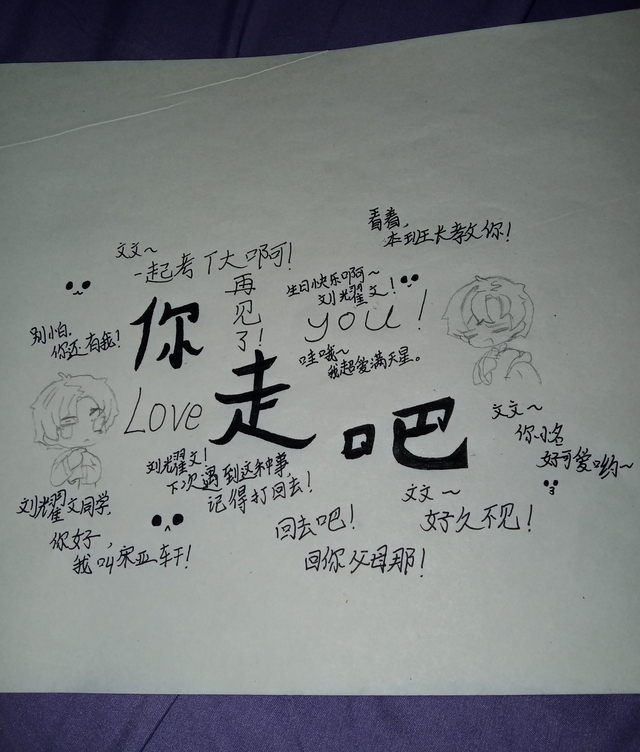 看着,
本班长教你!
文文~
一起考T大啊啊!
再见了!
生日快乐啊啊~
刘耀文!
you!
别怕,
你还有我!
你
哇哦~
我超爱满天星。
Love
走吧
文文~
你小名
好可爱哟~
刘耀文!
下次遇到这种事,
记得打回去!
刘耀文同学,
你好,
我叫宋亚轩!
回去吧!
回你父母那!
文文~
好久不见!